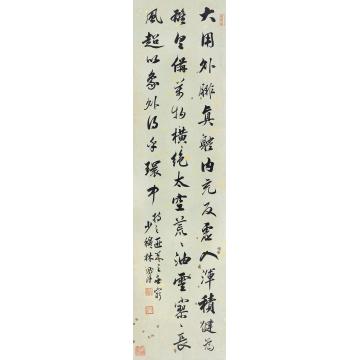 大用外腓真體內充反虛入渾積健為
雄具備萬物橫絕太空荒〻油雲寥〻長
風超以象外得其環中
少穆林則徐